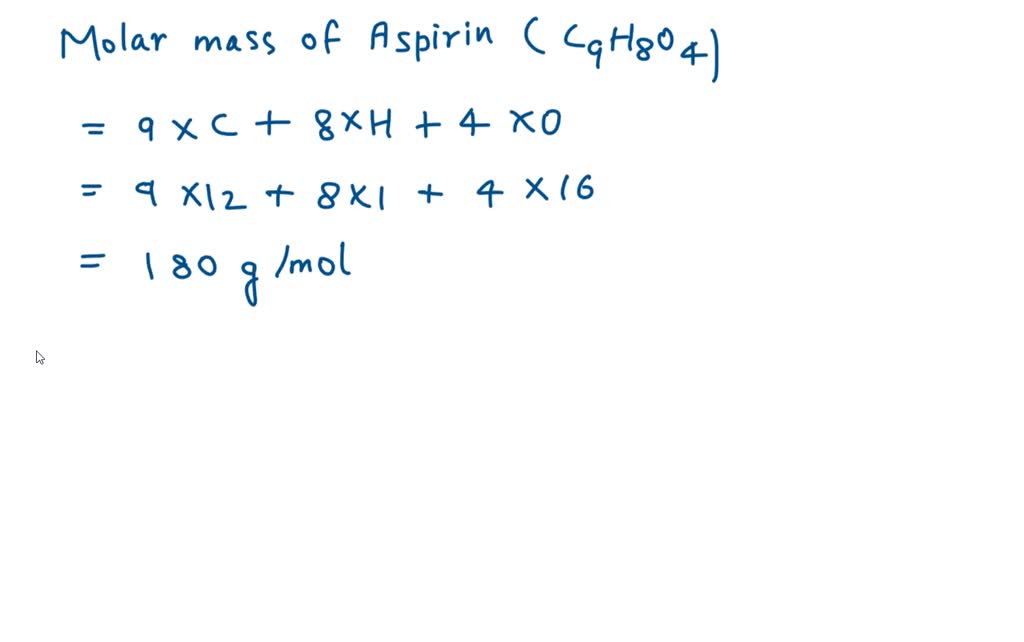 Molar mass of Aspirin (C9H8O4)
= 9 × C + 8×H + 4 ×O
= 9 ×12 + 8×1 + 4 ×16
= 180 g/mol